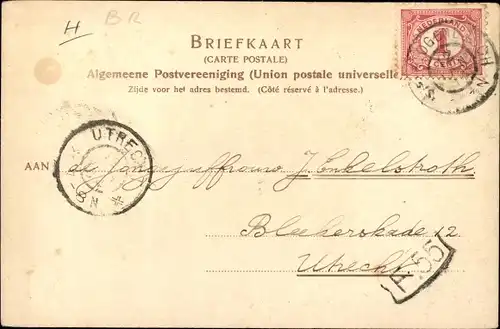 H BR
BRIEFKAART
(CARTE POSTALE)
Algemeene Postvereeniging (Union postale universelle)
Zijde voor het adres bestemd. (Côté réservé à l'adresse.)
NEDERLAND
1
CENT
UTRECHT
AAN de Jongejuffrouw J. Enkelstroth
Bleekerskade 12
Utrecht